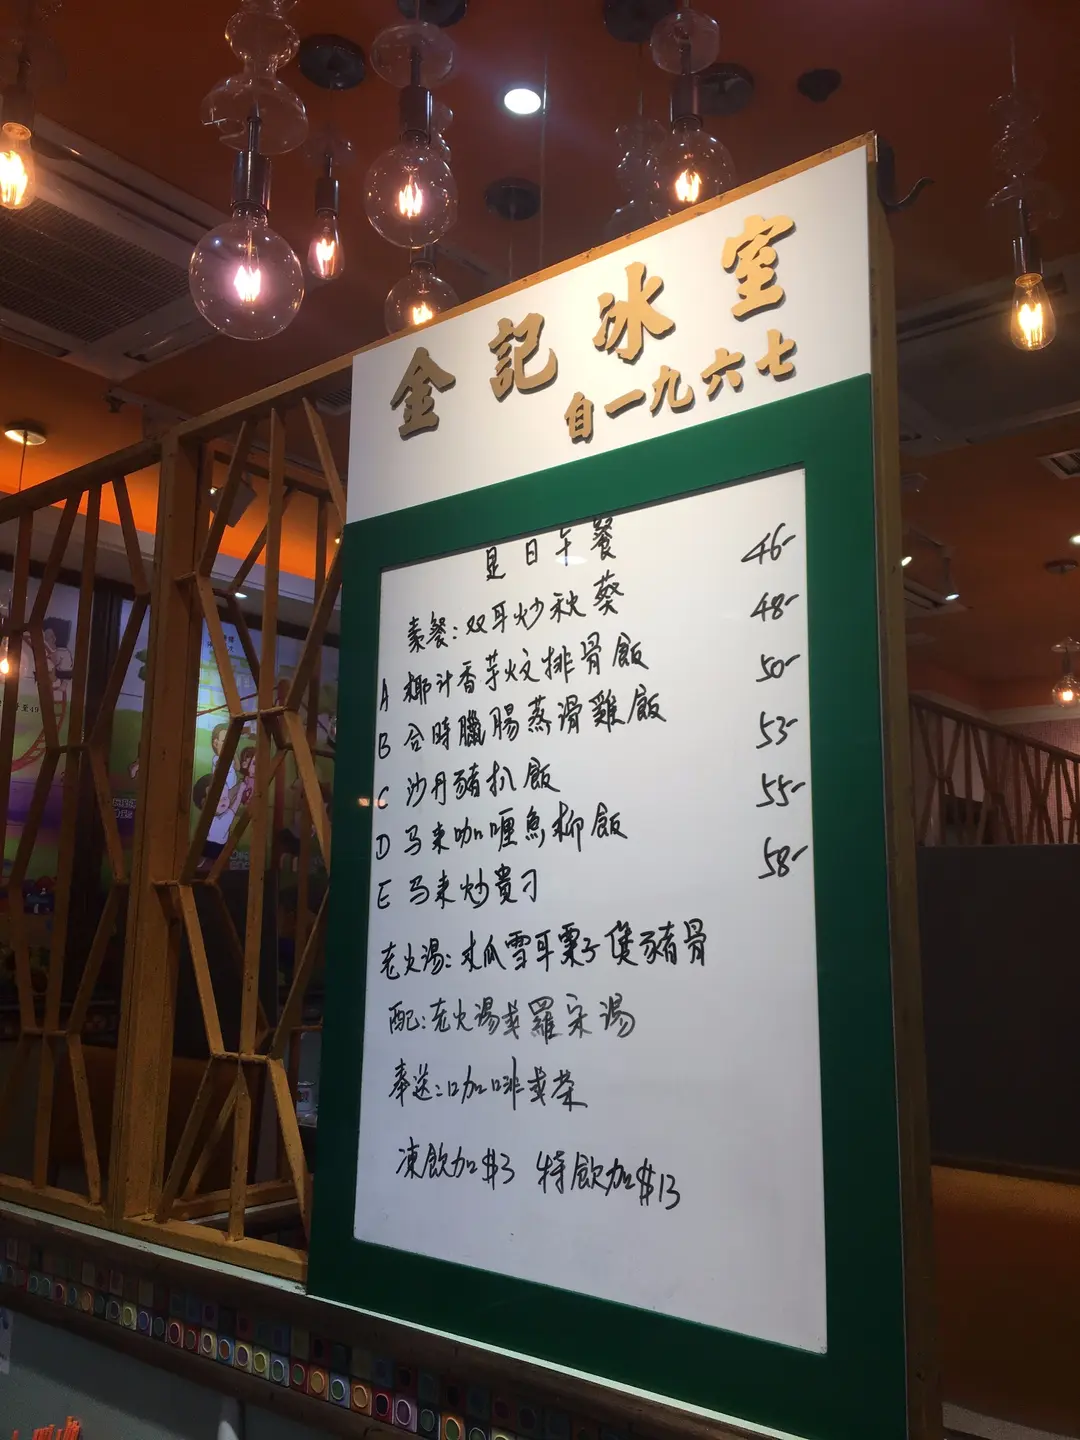 金記冰室
自一九六七
是日午餐
素餐:双耳炒秋葵 46-
A 椰汁香芋炆排骨飯 48-
B 合時臘腸蒸滑雞飯 50-
C 沙丹豬扒飯 53-
D 马来咖喱魚柳飯 55-
E 马来炒貴刁 58-
老火湯:木瓜雪耳栗子煲豬骨
配:老火湯或羅宋湯
奉送:咖啡或茶
凍飲加$3 特飲加$13